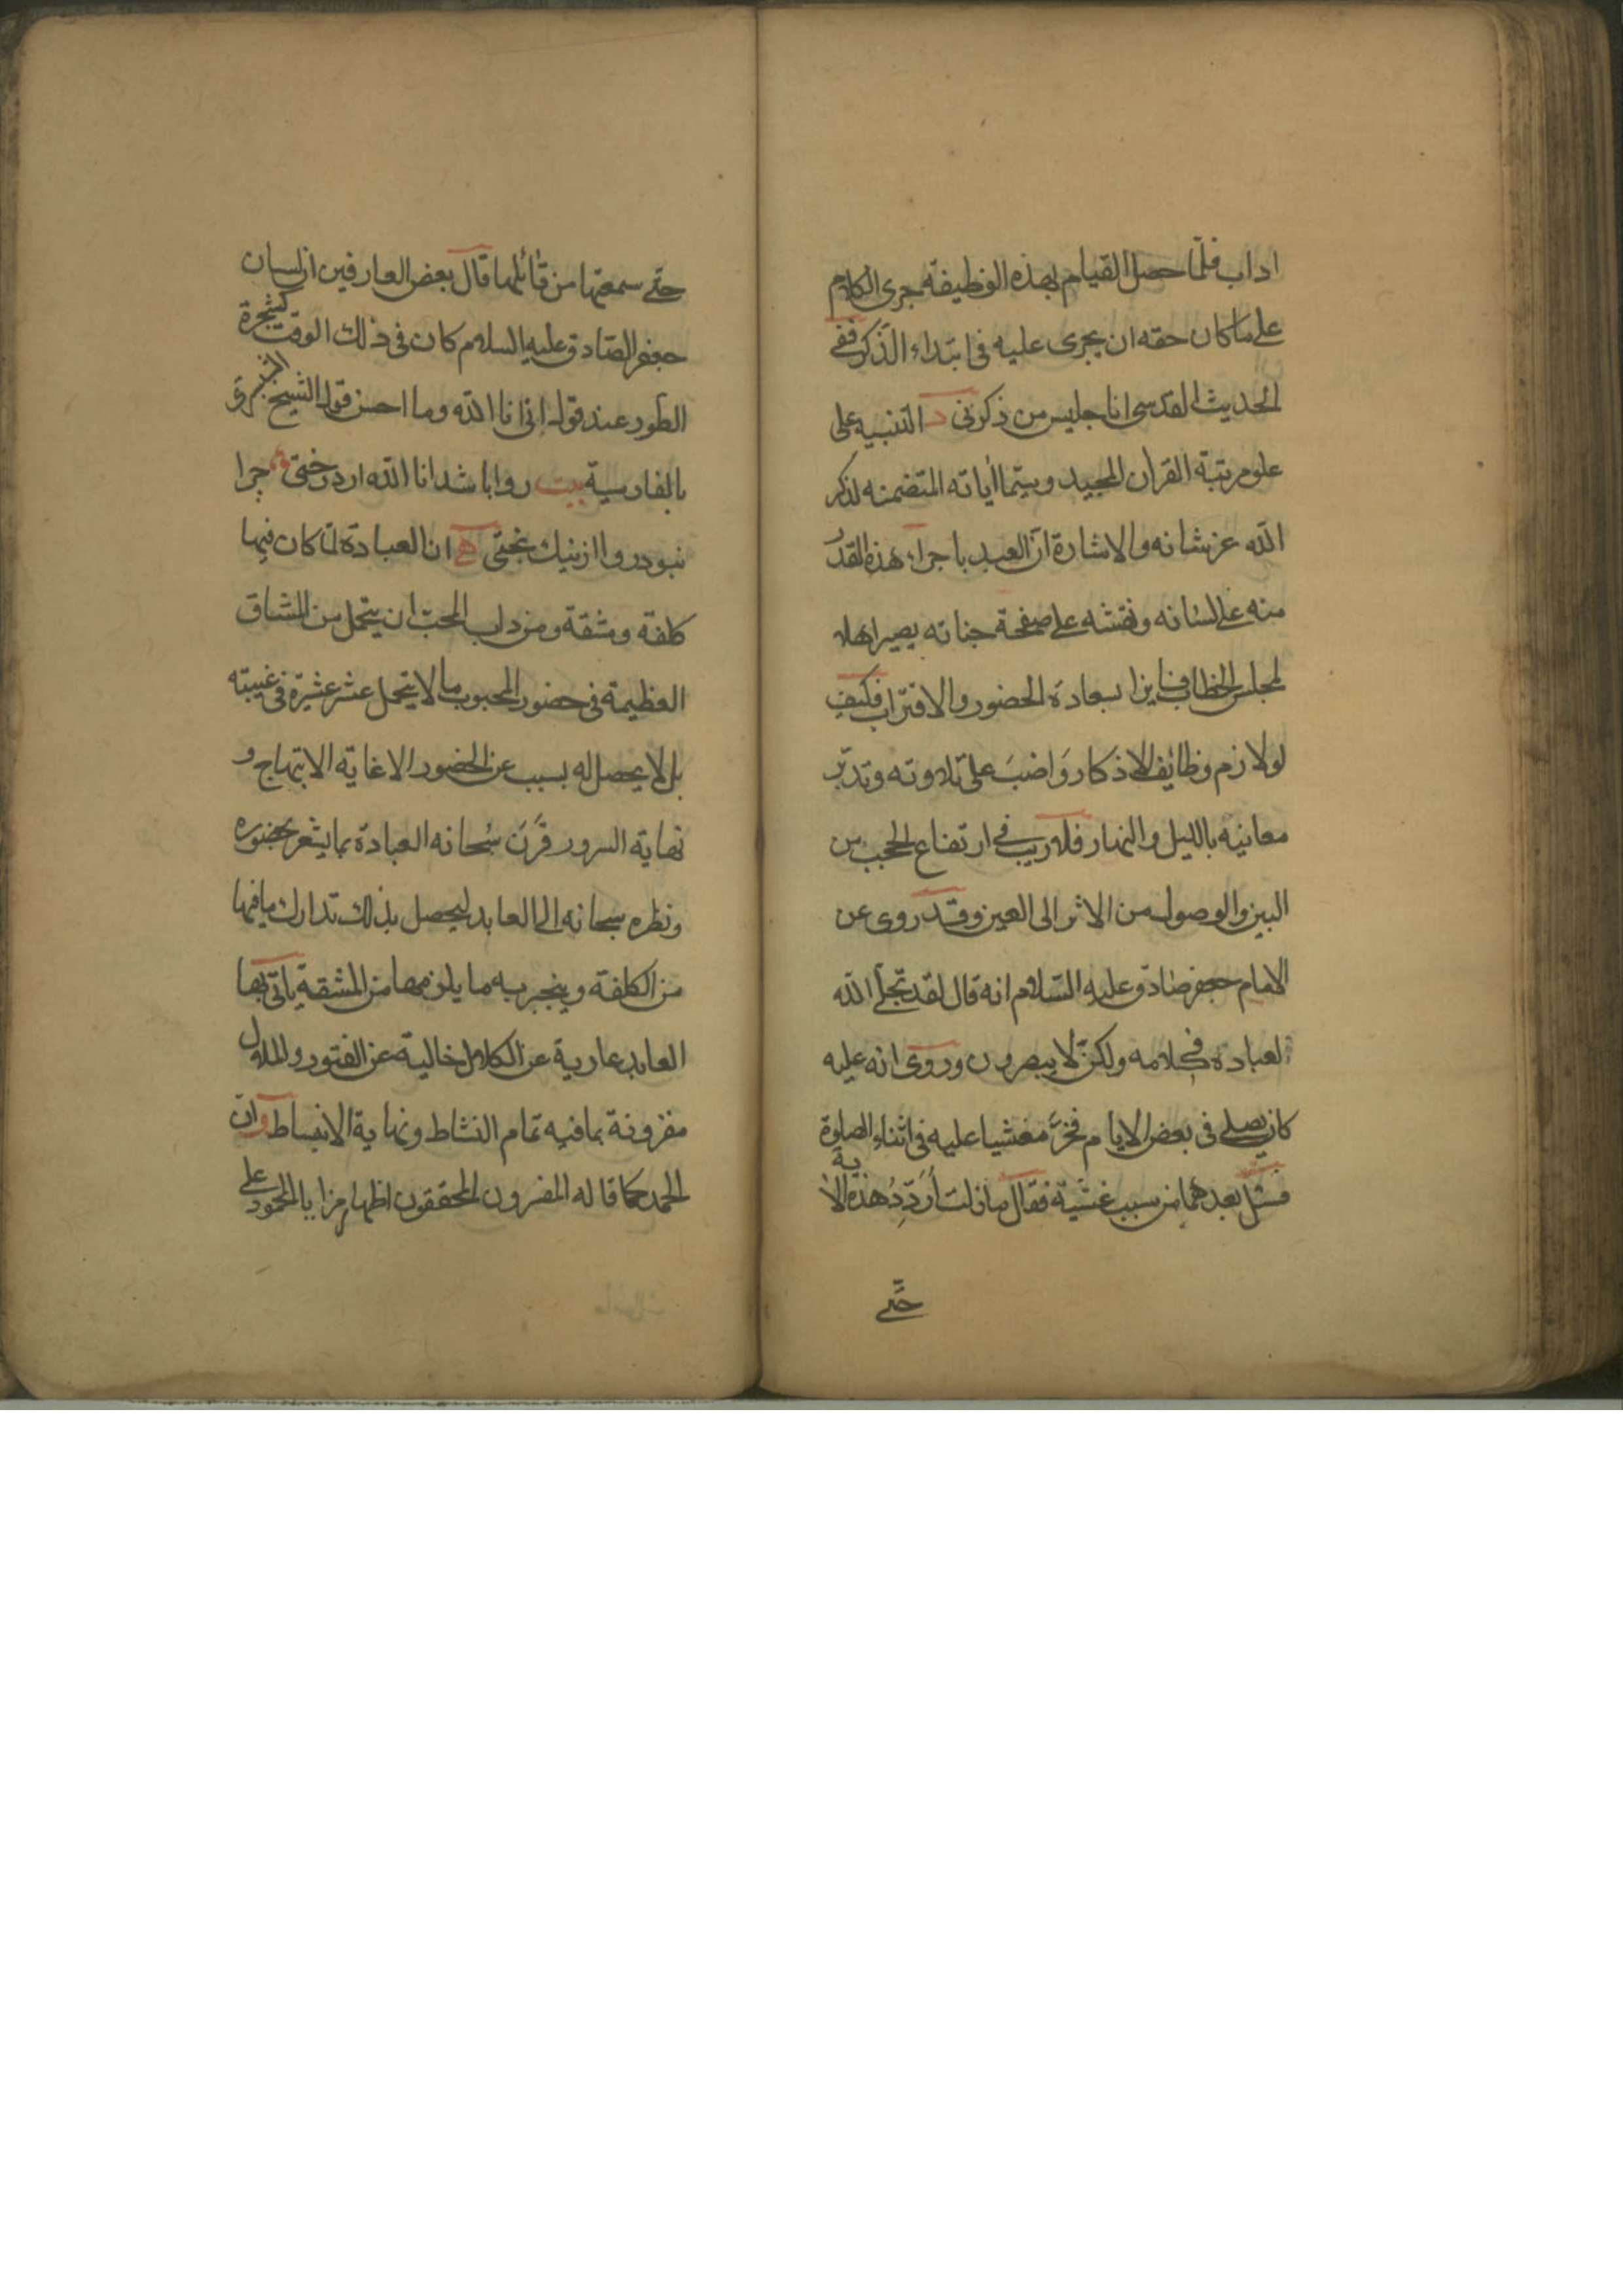 اداب فلمّا حصل القيام بهذه الوظيفة جرى الكلام
على ما كان حقه ان يجرى عليه فى ابتداء الذّكر ففى
الحديث القدسى انا جليس من ذكرنى د التنبيه على
علو مرتبة القران المجيد وسيّما اياته المتضمنه لذكر
الله عز شانه والاشارة انّ العبد باجراء هذه القدر
منه على لسانه ونقشه على صفحة جنانه يصير اهلا
لمجلس الخطاب فايزا بسعادة الحضور والاقتراب فكيف
لو لازم وظائف الاذكار وَاضبَ على تلاوته وتدبّر
معانيه بالليل والنهار فلا ريب فى ارتفاع الحجب من
البين والوصول من الاثر الى العين وقد روى عن
الامام جعفر صادق عليه السّلام انه قال لقد تجلّى الله
لعباده فى كلامه ولكن لا يبصرون وروى انه عليه
كان يصلى فى بعض الايام فخرّ مغشيا عليه فى اثناء الصلوة
فسئل بعدها من سبب غشيته فقال ما زلت أُردِّدُ هذه الاية
حتّى
حتّى سمعتها من قائلها قال بعض العارفين ان لسان
جعفر الصّادق عليه السلام كان فى ذلك الوقت كشجرة
الطور عند قوله انى انا الله وما احسن قول الشيخ الشبسترى
بالفارسية بيت روا باشد انا الله از درختى چرا
نبود روا از نيك بختى ه ان العبادة لمّا كان فيها
كلفة ومشقة ومن داب المحبّ ان يتحمل من المشاق
العظيمة فى حضور المحبوب ما لا يتحمل عشر عشيره فى غيبته
بل لا يحصل له بسبب عز الحضور الا غاية الابتهاج و
نهاية السرور قَرَنَ سُبحانه العبادة بما يشعر بحضوره
ونظره سبحانه الى العابد ليحصل بذلك تدارك ما فيها
من الكلفة وينجبر به ما يلزمها من المشقة ياتى بها
العابد عارية عن الكلال خالية عن الفتور والملال
مقرونة بما فيه تمام النشاط ونهاية الانبساط وان
الحمد كما قاله المفسرون المحققون اظهار مزايا المحمود على